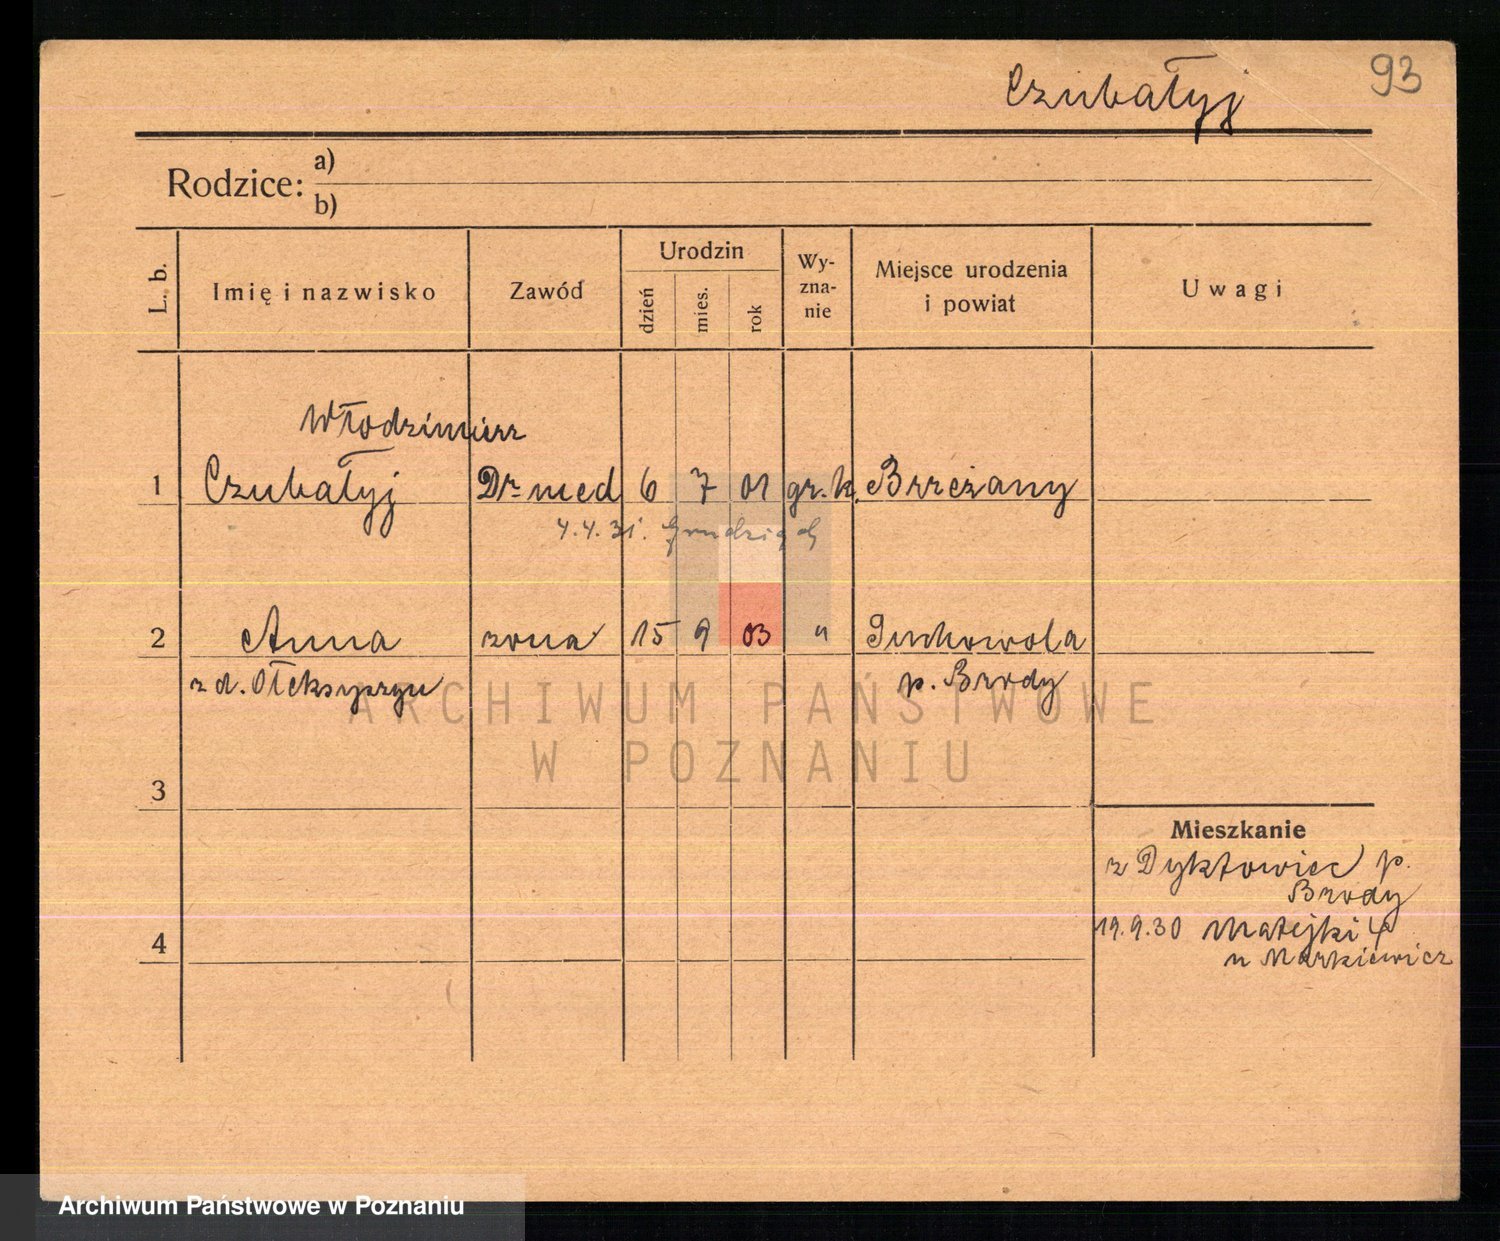 Czubałyj 93
Rodzice: a)
b)
L. b. Imię i nazwisko Zawód Urodzin dzień mies. rok Wy-zna-nie Miejsce urodzenia i powiat Uwagi
Włodzimierz
1 Czubałyj Dr med 6 7 01 gr. k. Brzeżany
4.4.31. Grudziądz
2 Anna żona 15 9 03 " Suchowola
z d. Ołeksyszyn p. Brody
ARCHIWUM PAŃSTWOWE
W POZNANIU
3
Mieszkanie
z Dyktowiec p.
Brody
4 19.9.30 Matejki 4
u Markiewicz
Archiwum Państwowe w Poznaniu